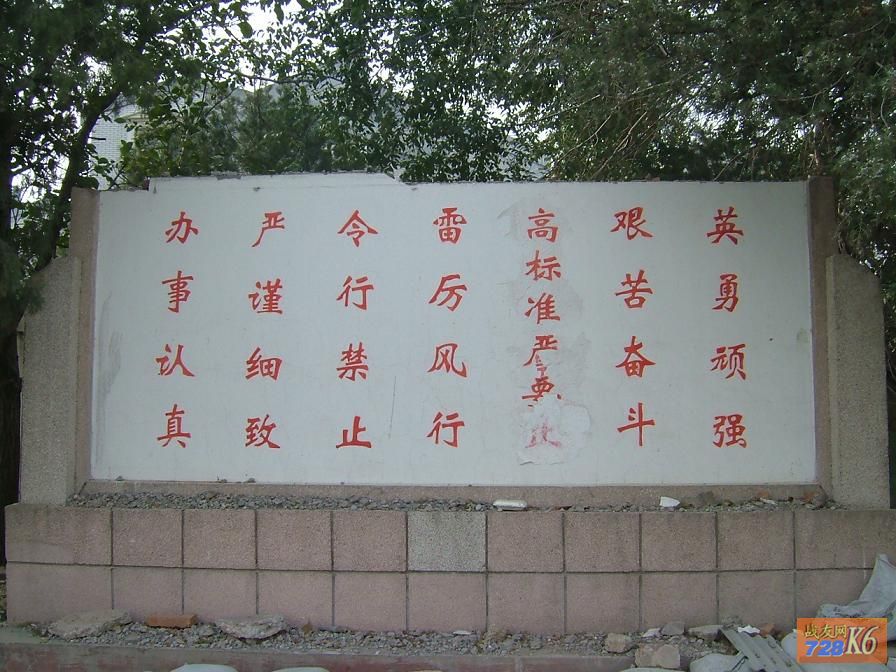 英勇顽强
艰苦奋斗
高标准严要
雷厉风行
令行禁止
严谨细致
办事认真
战友网
728K6